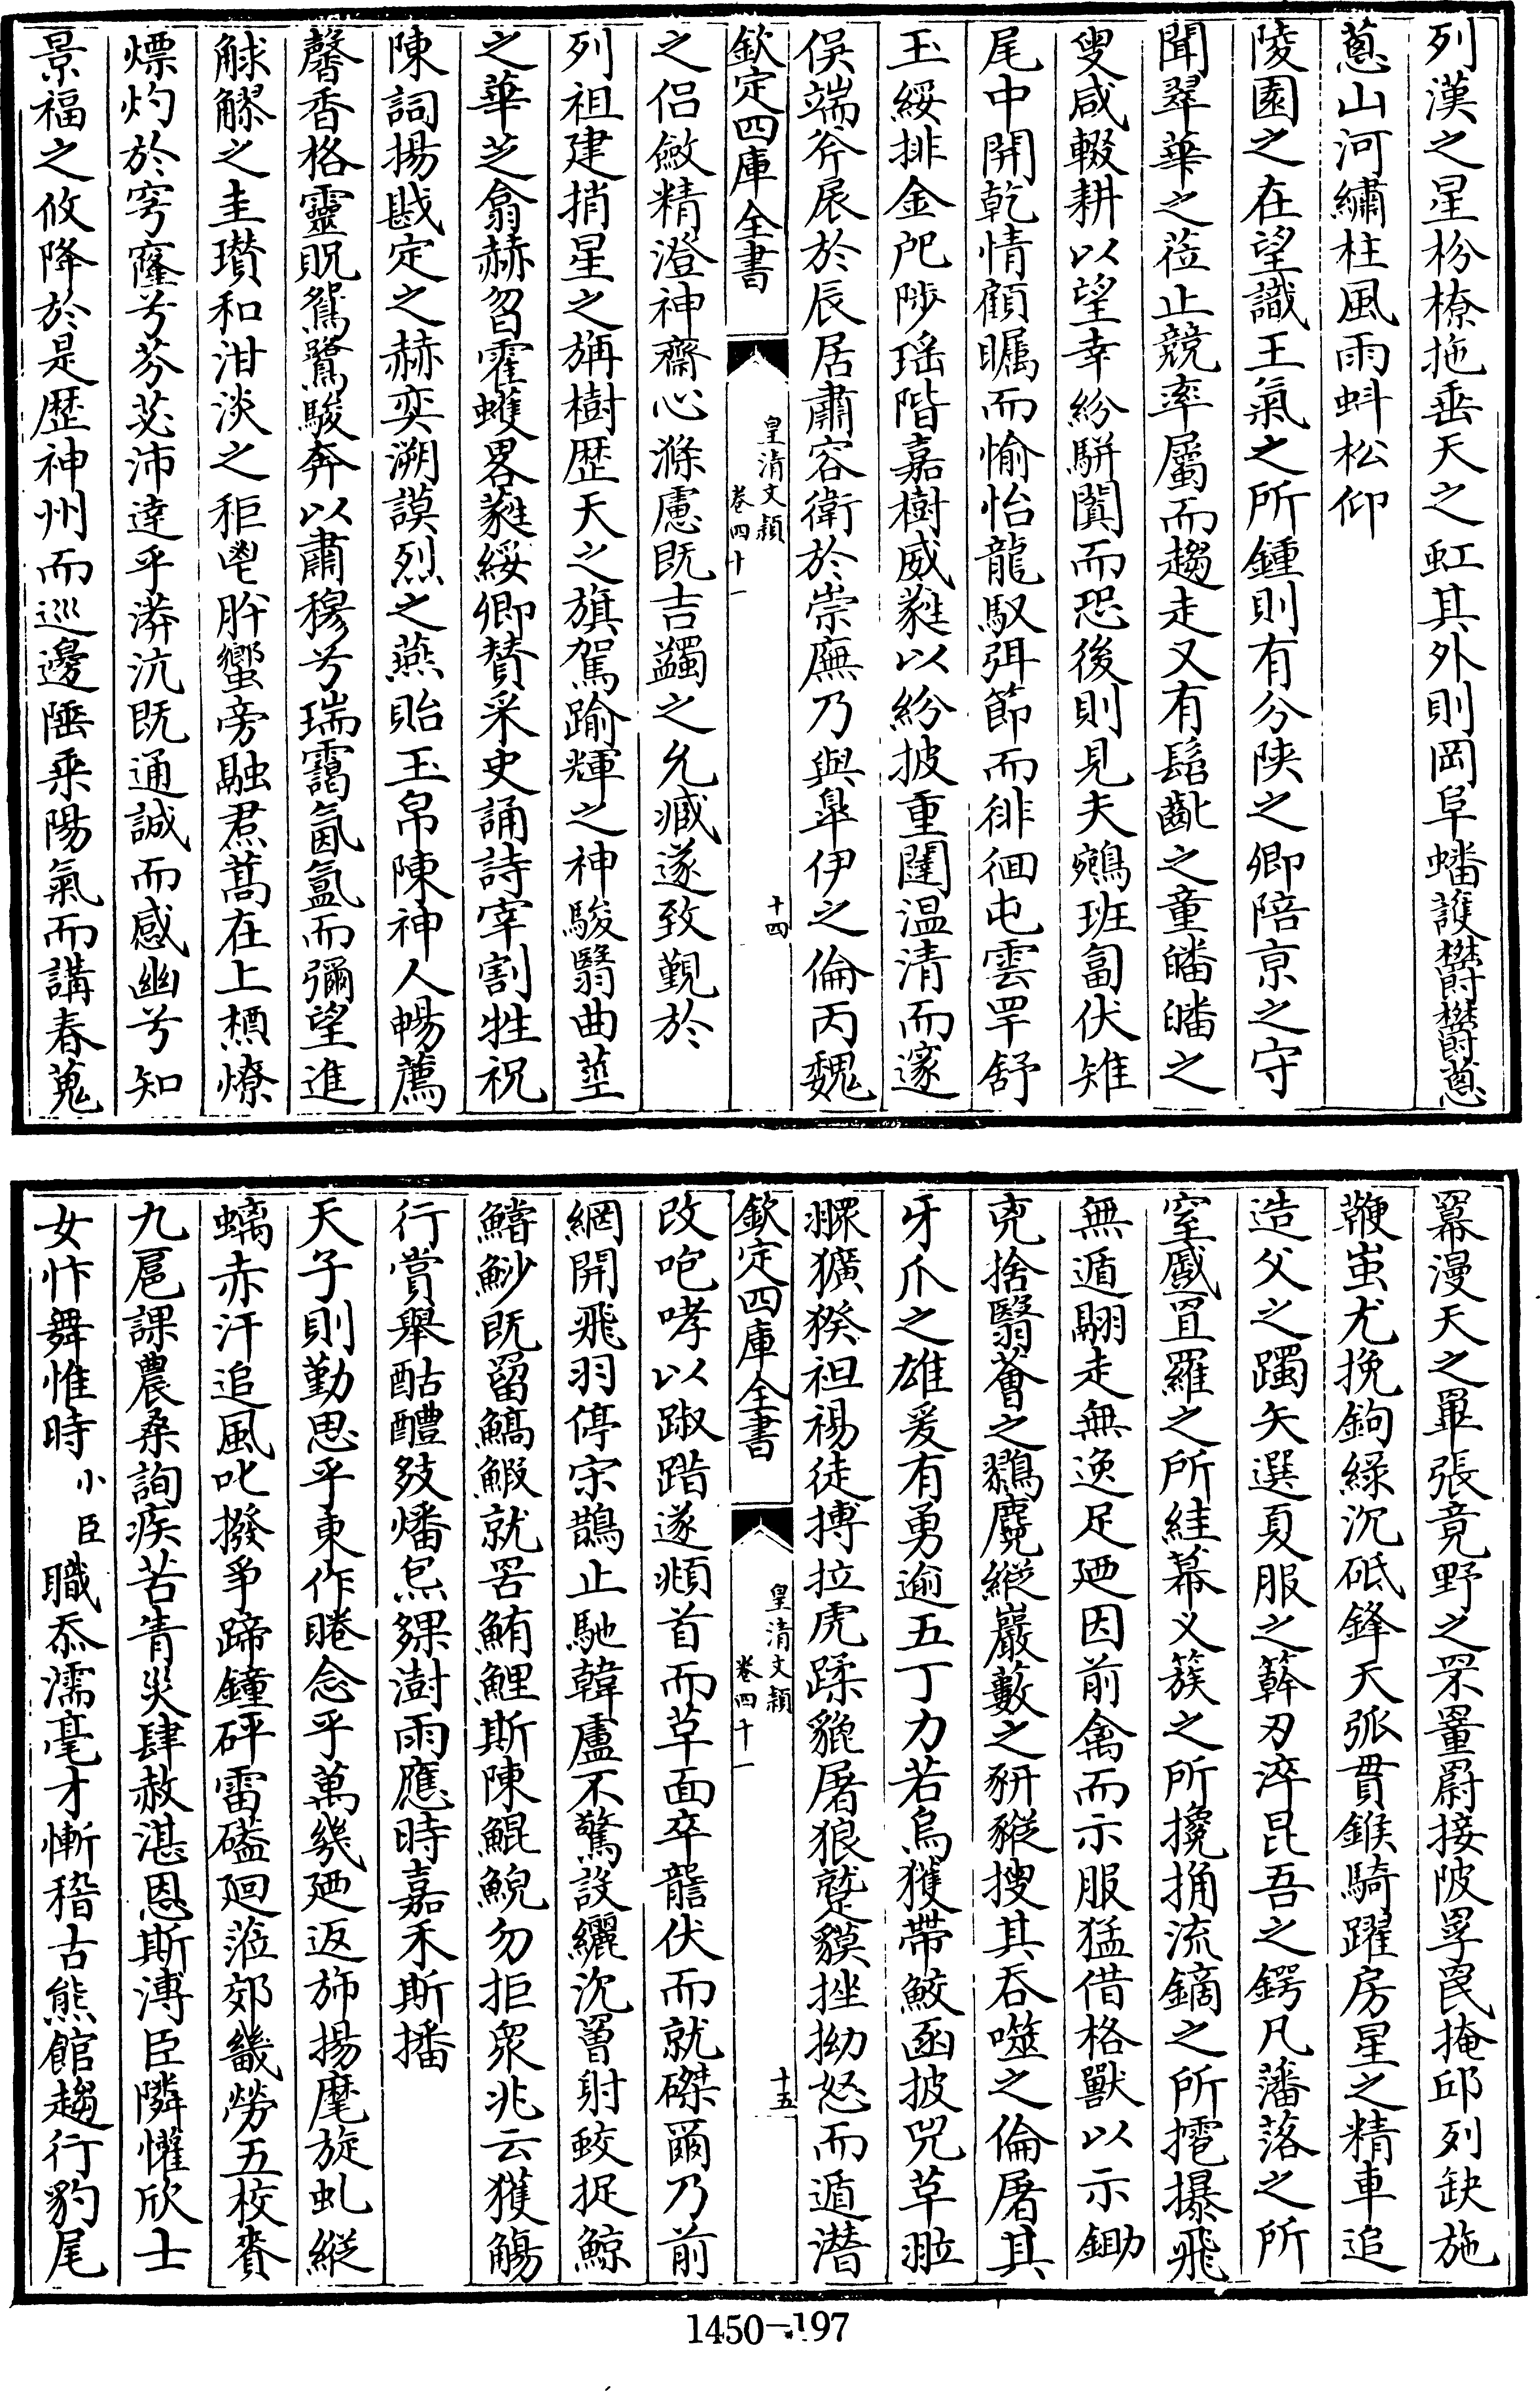 列漢之星枌橑拖垂天之虹其外則岡阜蟠護欝欝蔥
蔥山河繡柱風雨蚪松仰
陵園之在望識王氣之所鍾則有分陝之卿陪京之守
聞翠華之蒞止競率屬而趨走又有髫齔之童皤皤之
叟咸輟耕以望幸紛駢闐而恐後則見夫鵷班匐伏雉
尾中開乾情顧矚而愉怡龍馭弭節而徘徊屯雲罕舒
玉綏排金戺陟瑤階嘉樹威蕤以紛披重闈温清而邃
俁端斧扆於辰居肅容衛於崇廡乃與臯伊之倫丙魏
欽定四庫全書
皇清文穎
卷四十一
十四
之侣斂精澄神齋心滌慮既吉蠲之允臧遂致觐於
列祖建捎星之旃樹歴天之旗駕踰輝之神駿翳曲莖
之華芝翕赫曶霍蠖畧蕤綏卿贊采史誦詩宰割牲祝
陳詞揚戡定之赫奕溯謨烈之燕貽玉帛陳神人暢薦
馨香格靈貺鴛鷺駿奔以肅穆兮瑞靄氤氳而彌望進
觩觺之圭瓉和泔淡之秬鬯肸蠁旁融焄蒿在上槱燎
熛灼於穹窿兮芬苾沛達乎漭沆既通誠而感幽兮知
景福之攸降於是歴神州而巡邊陲乘陽氣而講春蒐
羃漫天之罼張竟野之罘罿罻接陂罦罠掩邱列缺施
鞭蚩尤挽鉤緑沉砥鋒天弧貫鍭騎躍房星之精車追
造父之躅矢選夏服之簳刃淬昆吾之鍔凡藩落之所
窒戲罝羅之所絓幕义簇之所攙捔流鏑之所攩㩧飛
無遁翮走無逸足廼因前禽而示服猛借格獸以示鋤
兇捨翳薈之鷚麑縱巖藪之豜豵搜其吞噬之倫屠其
牙爪之雄爰有勇逾五丁力若烏獲帶鮫函披兕革羂
騾獷猤袒裼徒搏拉虎蹂貔屠狼躄貘挫拗怒而遁潛
欽定四庫全書
皇清文穎
卷四十一
十五
改咆哮以踧踖遂頫首而革面卒讋伏而就磔爾乃前
網開飛羽停宋鵲止馳韓盧不驚設纚沉罾射蛟捉鯨
鱨鯋既罶鰝鰕就罟鮪鯉斯陳鯤鯢勿拒衆兆云獲觴
行賞舉酤醴㱔燔炰夥澍雨應時嘉禾斯播
天子則勤思乎東作睠念乎萬幾廼返斾揚麾旋虬縱
螭赤汗追風叱撥爭蹄鐘砰雷磕迴蒞郊畿勞五校賚
九扈課農桑詢疾苦眚災肆赦湛恩斯溥臣隣懽欣士
女忭舞惟時小臣職忝濡毫才慚稽古熊館趨行豹尾
1450-197